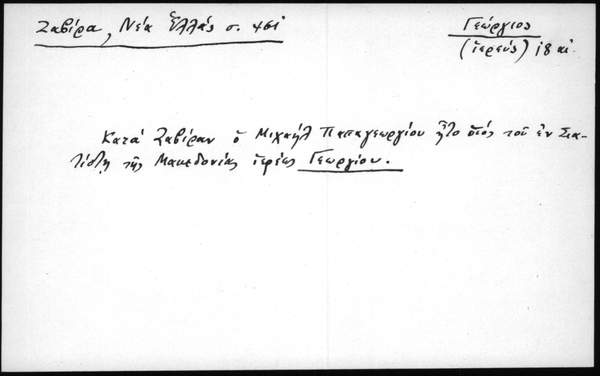 Ζαβίρα, Νέα Ἑλλάς σ. 461
Γεώργιος
(ἱερεύς) 18 αἰ.
Κατά Ζαβίραν ὁ Μιχαήλ Παπαγεωργίου ἦτο υἱός τοῦ ἐν Σια-
τίστῃ τῆς Μακεδονίας ἱερέως Γεωργίου.